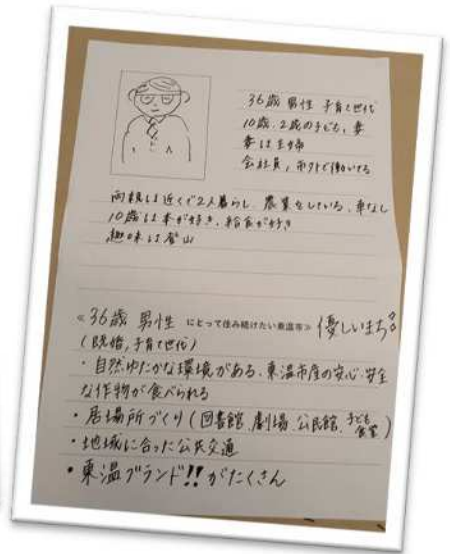 36歳 男性 子育て世代
10歳、2歳の子ども、妻
妻は主婦
会社員、市外で働いてる
両親は近くで2人暮らし、農業をしている、車なし
10歳は本が好き、給食が好き
趣味は登山
《36歳 男性 にとって住み続けたい東温市》優しいまち
(既婚、子育て世代)
・自然ゆたかな環境がある、東温市産の安心・安全
な作物が食べられる
・居場所づくり(図書館、劇場、公民館、子ども食堂)
・地域に合った公共交通
・東温ブランド!!がたくさん